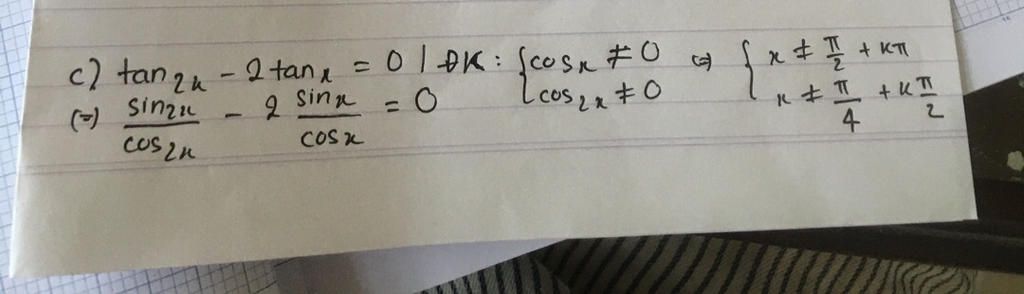 c) tan2x - 2tanx = 0 | ĐK: { cosx ≠ 0 cos2x ≠ 0 (=) { x ≠ π/2 + kπ x ≠ π/4 + k π/2
(=) sin2x/cos2x - 2 sinx/cosx = 0